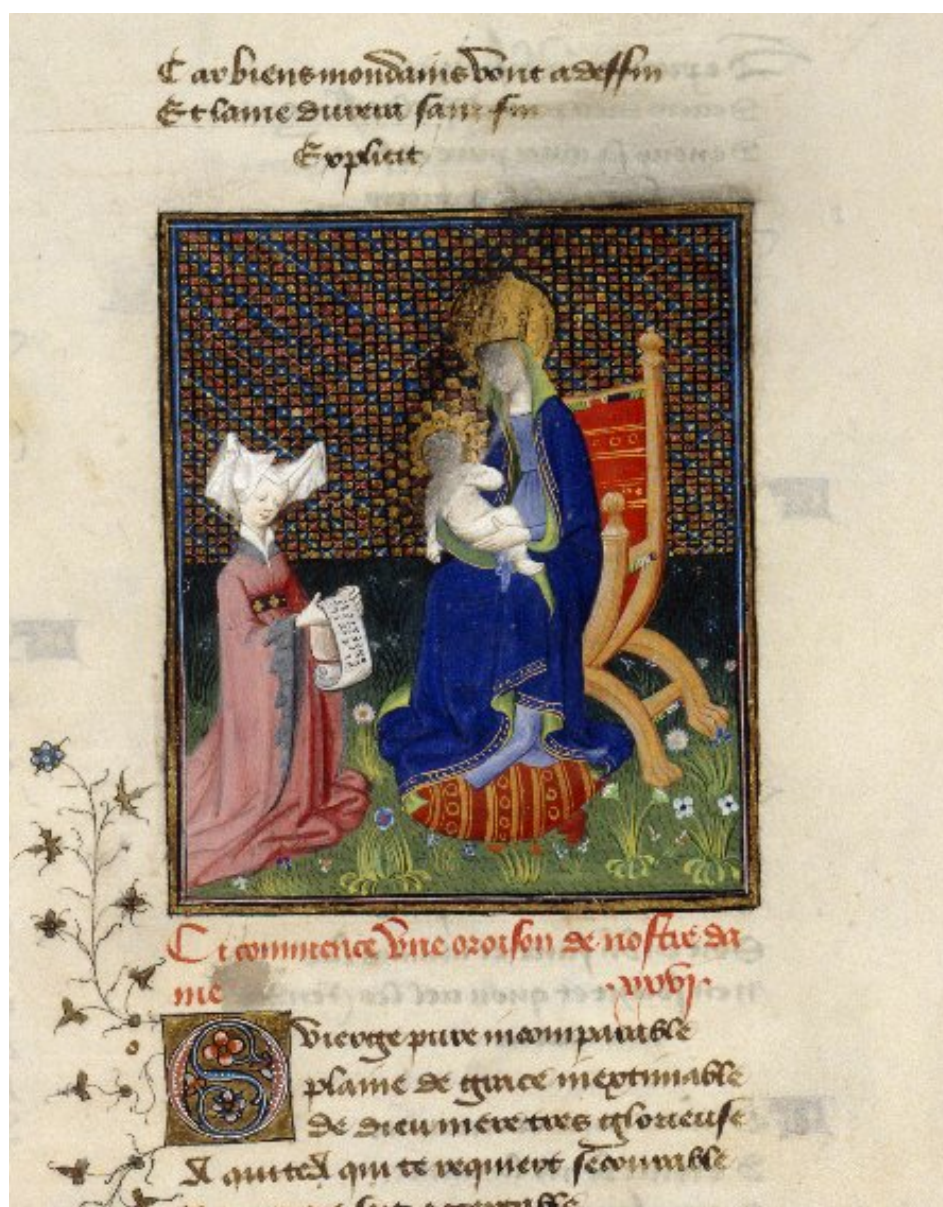 Car biens mondains vont a deffin
Et lame durera sanz fin
Explicit
Cy commence une oroison de nostre da
me .xxvj.
O vierge pure incomparable
plaine de grace inextimable
de dieu mere tres glorieuse
A quite a qui te requiert secourable